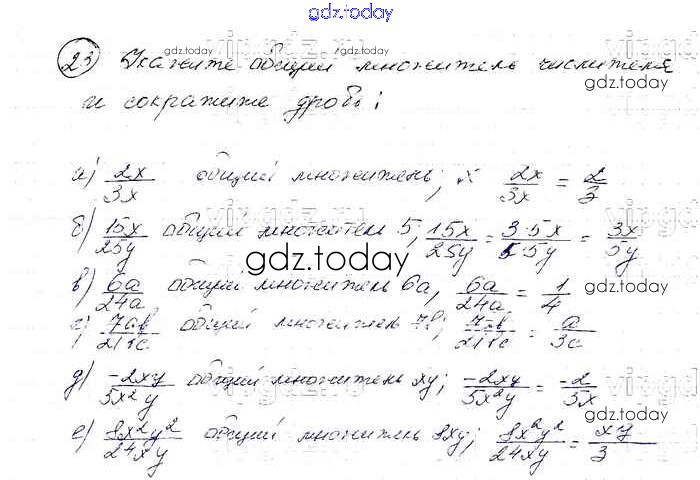 gdz.today
23 Укажите общий множитель числителя
и сократите дробь:
а) 2x/3x общий множитель; x 2x/3x = 2/3
б) 15x/25y общий множитель 5; 15x/25y = 3·5x/5·5y = 3x/5y
gdz.today
в) 6a/24a общий множитель 6a, 6a/24a = 1/4
г) 7ab/21bc общий множитель 7b; 7ab/21bc = a/3c
д) -2xy/5x²y общий множитель xy; -2xy/5x²y = -2/5x
е) 8x²y²/24xy общий множитель 8xy; 8x²y²/24xy = xy/3